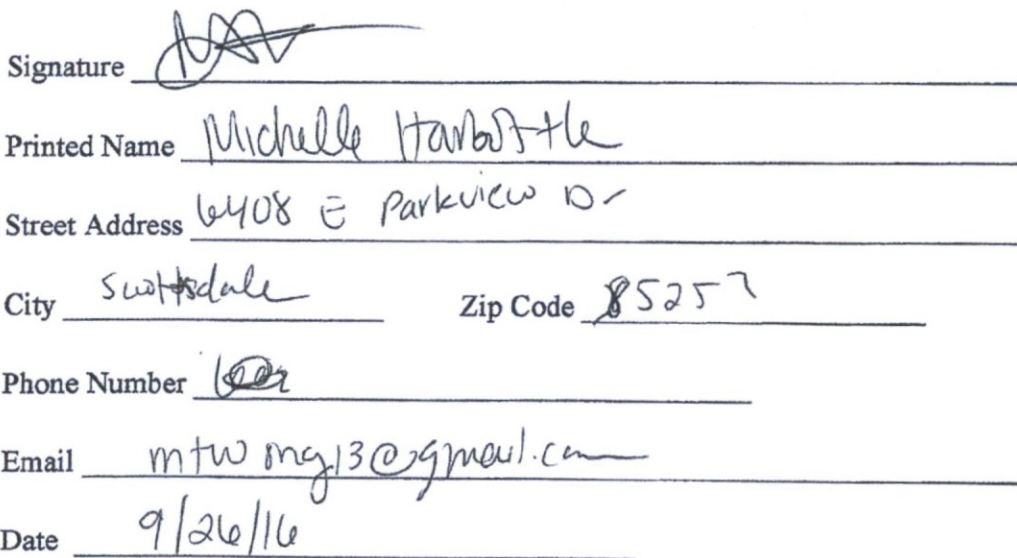 Signature
Printed Name Michelle Harbottle
Street Address 6408 E Parkview Dr
City Scottsdale Zip Code 85257
Phone Number
Email mtwong13@gmail.com
Date 9/26/16